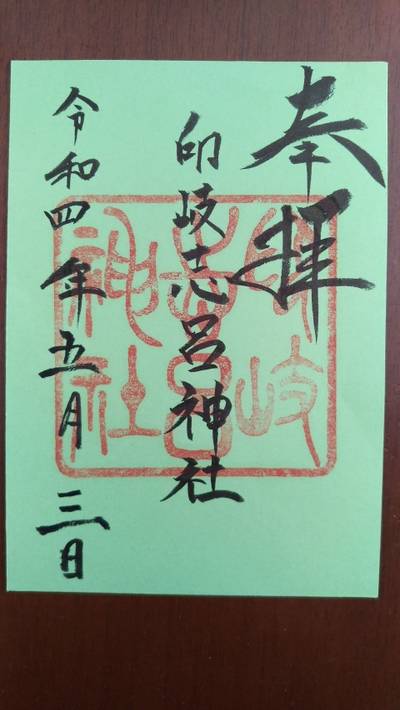 奉拝
印岐志呂神社
令和四年五月三日
印岐
志呂
神社